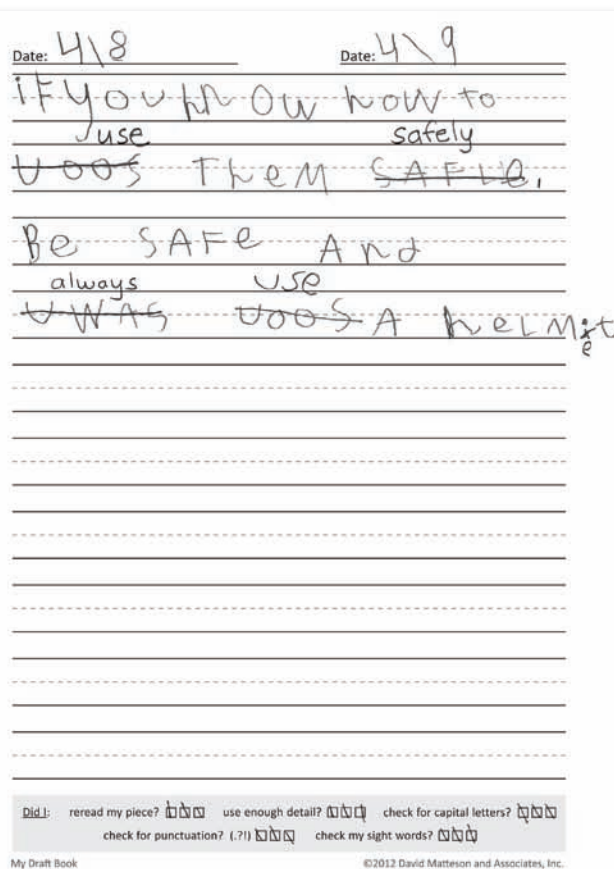 Date: 4\8 Date: 4\9
iF you know how to
use safely
UOOS ThEM SAFLE.
Be SAFe And
always use
UWAS UOOS A heLMit
e
Did I: reread my piece? use enough detail? check for capital letters?
check for punctuation? (.?!) check my sight words?
My Draft Book ©2012 David Matteson and Associates, Inc.